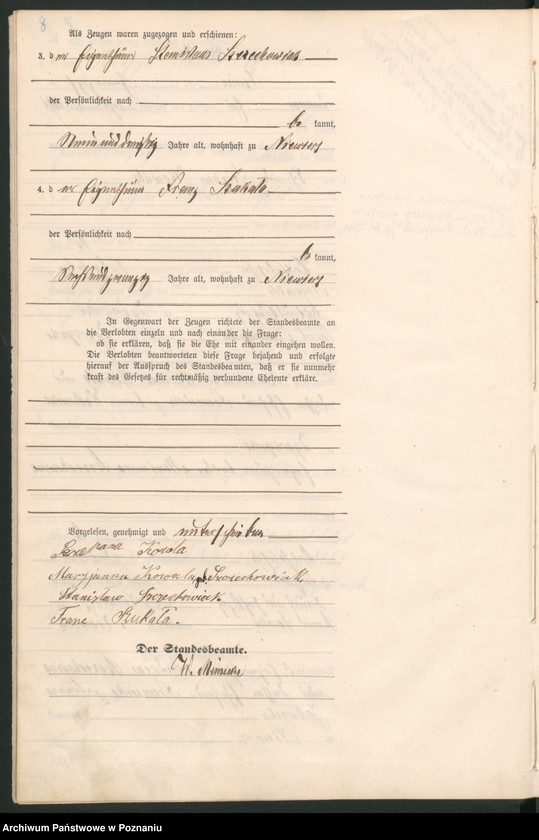 8
Als Zeugen waren zugezogen und erschienen:
3. der Eigenthümer Stanislaus Szczechowiak
der Persönlichkeit nach
be kannt,
Neununddreißig Jahre alt, wohnhaft zu
4. der Eigenthümer Franz Szukala
der Persönlichkeit nach
be kannt,
Sechsundzwanzig Jahre alt, wohnhaft zu
In Gegenwart der Zeugen richtete der Standesbeamte an
die Verlobten einzeln und nach einander die Frage:
ob sie erklären, daß sie die Ehe mit einander eingehen wollen.
Die Verlobten beantworteten diese Frage bejahend und erfolgte
hierauf der Ausspruch des Standesbeamten, daß er sie nunmehr
kraft des Gesetzes für rechtmäßig verbundene Eheleute erkläre.
Vorgelesen, genehmigt und unterschrieben
Maryjanna Kowala geb. Szczechowiak
Stanisław Szczechowiak
Franc Szukała.
Der Standesbeamte.
W.
Archiwum Państwowe w Poznaniu